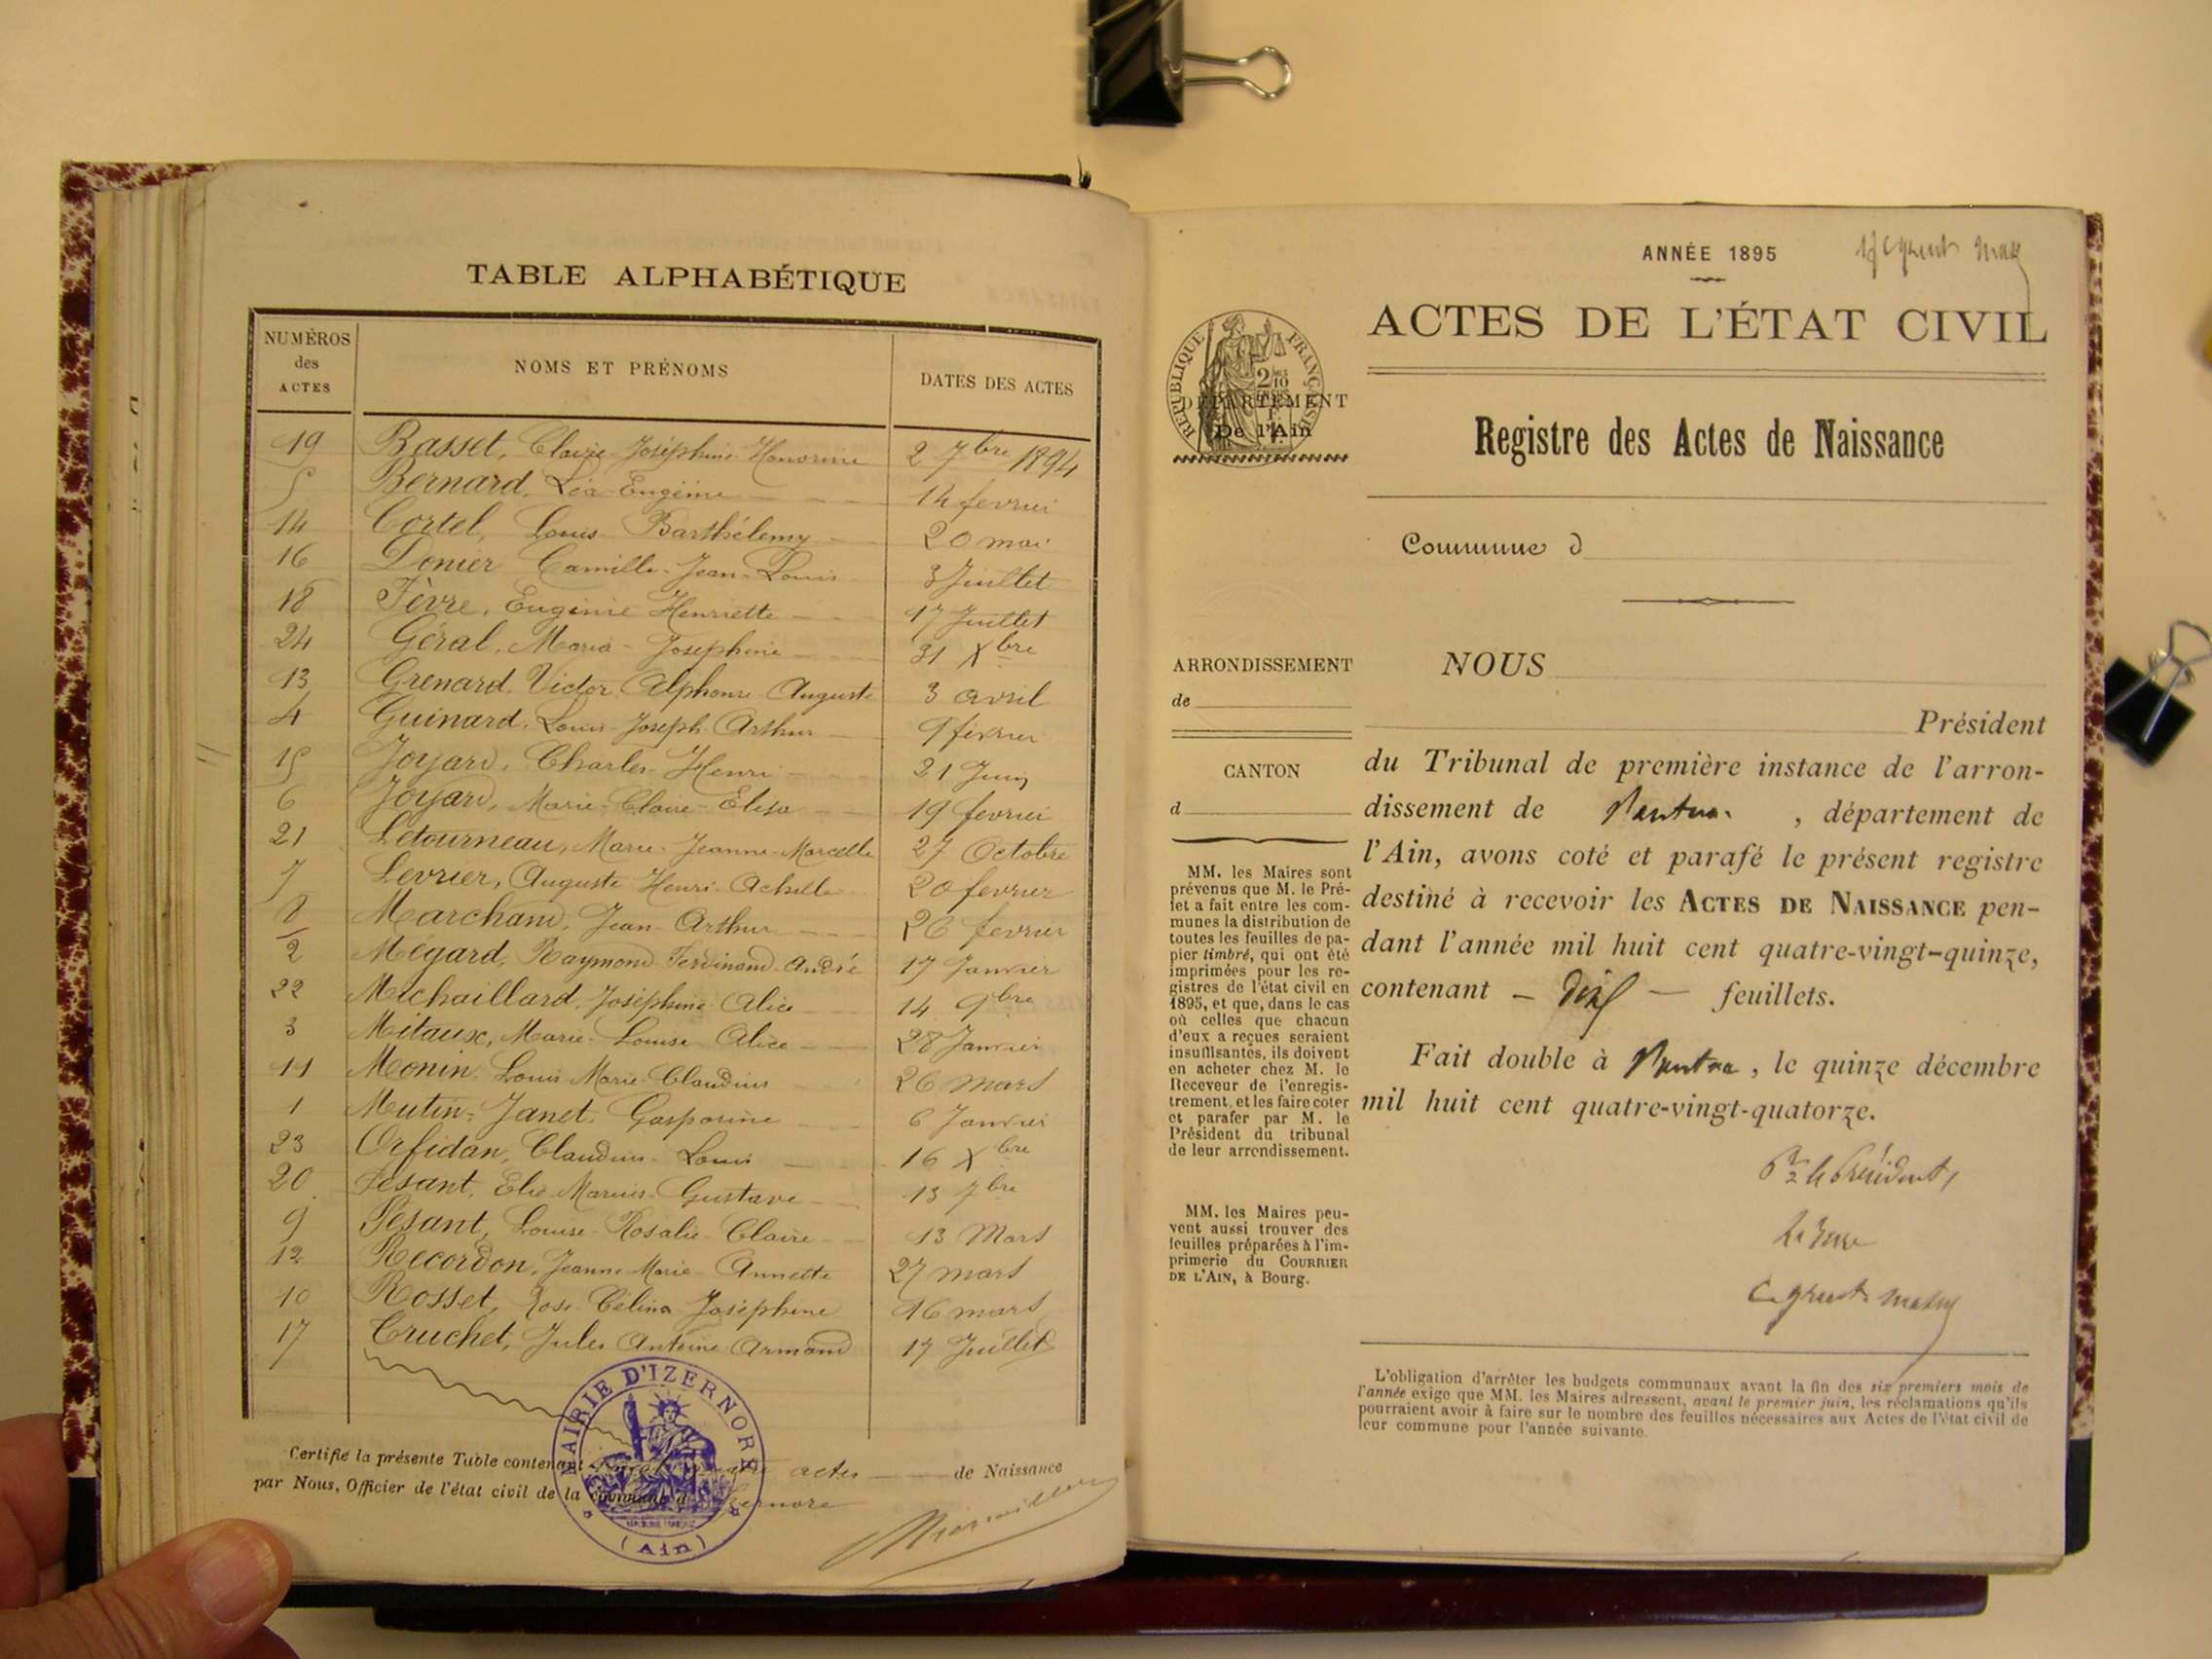 TABLE ALPHABÉTIQUE
NUMÉROS des ACTES NOMS ET PRÉNOMS DATES DES ACTES
19 Basset, Claire Joséphine Honorine 2 7bre 1894
5 Bernard, Léa Eugénie 14 fevrier
14 Cortel, Louis Barthélemy 20 mai
16 Donier Camille Jean-Louis 3 Juillet
18 Fèvre, Eugénie Henriette 17 Juillet
24 Géral, Maria Josephine 31 Xbre
13 Grenard, Victor Alphonse Auguste 3 avril
4 Guinard, Louis Joseph Arthur 9 fevrier
15 Joyard, Charles Henri 21 Juin
6 Joyard, Marie Claire Elisa 19 fevrier
21 Letourneau, Marie Jeanne Marcelle 27 Octobre
7 Levrier, Auguste Henri Achille 20 fevrier
8 Marchand, Jean Arthur 26 fevrier
2 Mégard, Raymond Ferdinand André 17 Janvier
22 Michaillard, Joséphine Alice 14 9bre
3 Mitaux, Marie Louise Alice 28 Janvier
11 Monin Louis Marie Claudius 26 mars
1 Mutin-Janet, Gasparine 6 Janvier
23 Orfidan, Claudius Louis 16 Xbre
20 Pesant, Elie Marius Gustave 13 7bre
9 Pesant, Louise Rosalie Claire 13 Mars
12 Recordon, Jeanne Marie Annette 27 mars
10 Rosset, Rose Célina Joséphine 16 mars
17 Cruchet, Jules Antoine Armand 17 Juillet
MAIRIE D'IZERNORE
(Ain)
Certifié la présente Table contenant vingt quatre actes de Naissance
par Nous, Officier de l'état civil de la commune d'Izernore
ANNÉE 1895
ACTES DE L'ÉTAT CIVIL
RÉPUBLIQUE FRANÇAISE
DÉPARTEMENT
De l'Ain
Registre des Actes de Naissance
Commune d
ARRONDISSEMENT
de
CANTON
d
MM. les Maires sont
prévenus que M. le Pré-
fet a fait entre les com-
munes la distribution de
toutes les feuilles de pa-
pier timbré, qui ont été
imprimées pour les re-
gistres de l'état civil en
1895, et que, dans le cas
où celles que chacun
d'eux a reçues seraient
insuffisantes, ils doivent
en acheter chez M. le
Receveur de l'enregis-
trement, et les faire coter
et parafer par M. le
Président du tribunal
de leur arrondissement.
MM. les Maires peu-
vent aussi trouver des
feuilles préparées à l'im-
primerie du COURRIER
DE L'AIN, à Bourg.
NOUS
Président
du Tribunal de première instance de l'arron-
dissement de Nantua, département de
l'Ain, avons coté et parafé le présent registre
destiné à recevoir les ACTES DE NAISSANCE pen-
dant l'année mil huit cent quatre-vingt-quinze,
contenant – dix – feuillets.
Fait double à Nantua, le quinze décembre
mil huit cent quatre-vingt-quatorze.
Pr le Président,
Le Juge
L'obligation d'arrêter les budgets communaux avant la fin des six premiers mois de
l'année exige que MM. les Maires adressent, avant le premier juin, les réclamations qu'ils
pourraient avoir à faire sur le nombre des feuilles nécessaires aux Actes de l'état civil de
leur commune pour l'année suivante.